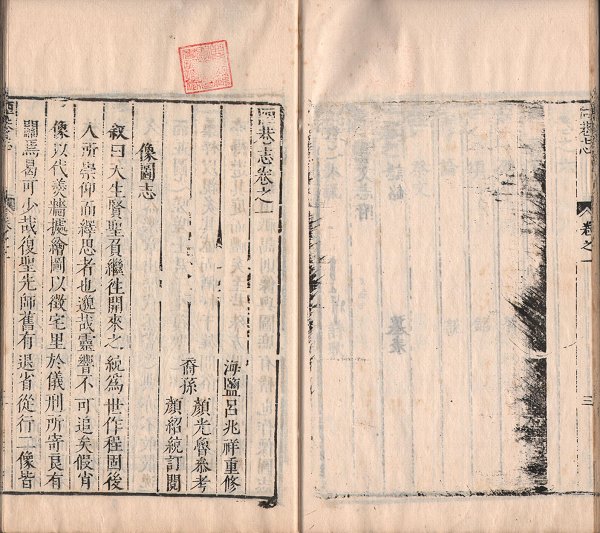 陋巷志
卷之一
三
陋巷志卷之一
海鹽呂兆祥重修
裔孫
顏光魯叅考
顏紹統訂閱
像圖志
叙曰天生賢聖負繼徃開來之統為世作程固後
人所崇仰而繹思者也邈哉靈響不可追矣假肖
像以代羹牆據繪圖以徵宅里於儀刑所寄良有
關焉曷可少哉復聖先師舊有退省從行二像皆